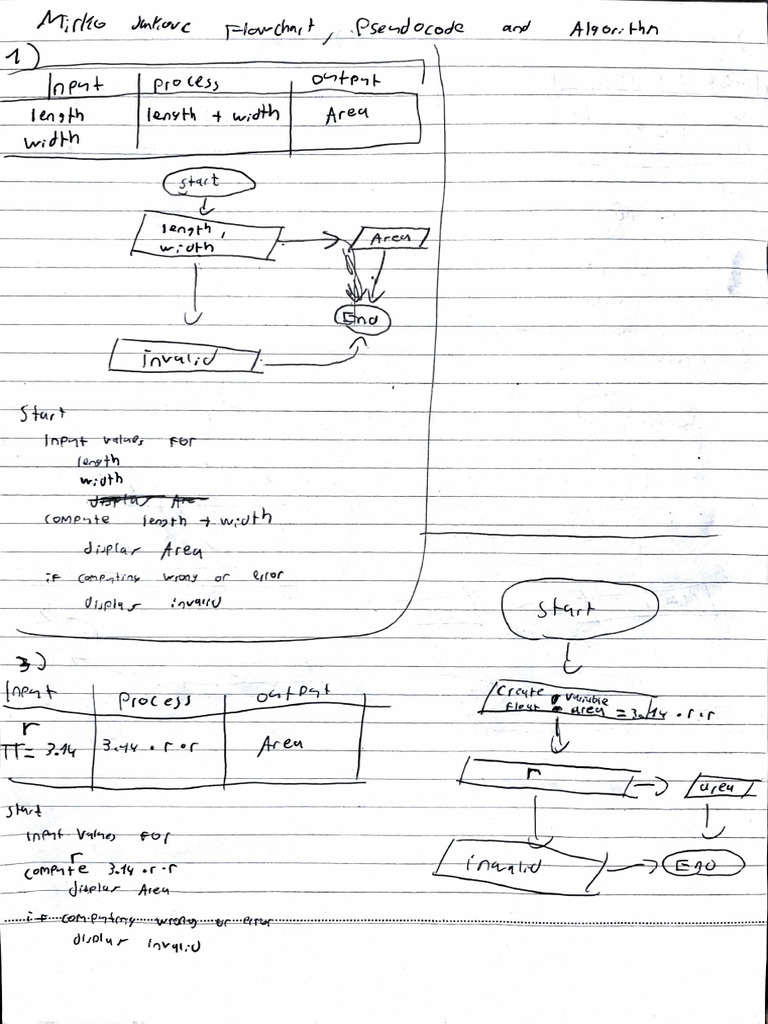 Mirko Jankovic Flowchart, Pseudocode and Algorithm
1)
Input process output
length length + width Area
width
start
length,
width
Area
End
invalid
Start
Input values For
length
width
display Are
compute length + width
display Area
if computing wrong or error
display invalid
3)
Input process output
r
π = 3.14 3.14 · r · r Area
start
input values For
r
compute 3.14 · r · r
display Area
if computing wrong or error
display invalid
Start
Create variable
Float area = 3.14 · r · r
r
area
invalid
End